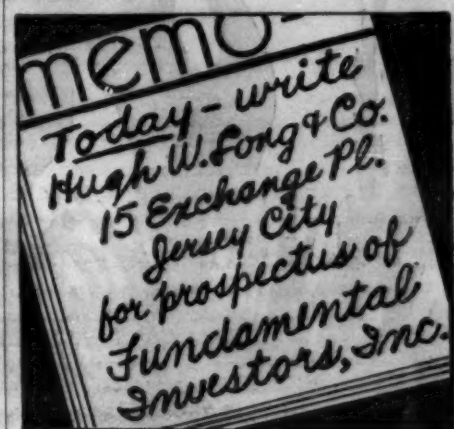 memo-
Today - write
Hugh W. Long & Co.
15 Exchange Pl.
Jersey City
for prospectus of
Fundamental
Investors, Inc.